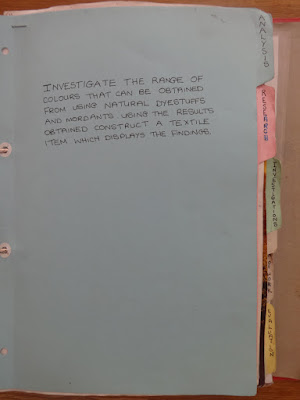 INVESTIGATE THE RANGE OF
COLOURS THAT CAN BE OBTAINED
FROM USING NATURAL DYESTUFFS
AND MORDANTS. USING THE RESULTS
OBTAINED CONSTRUCT A TEXTILE
ITEM WHICH DISPLAYS THE FINDINGS.
ANALYSIS
RESEARCH
INVESTIGATIONS
EVALUATION